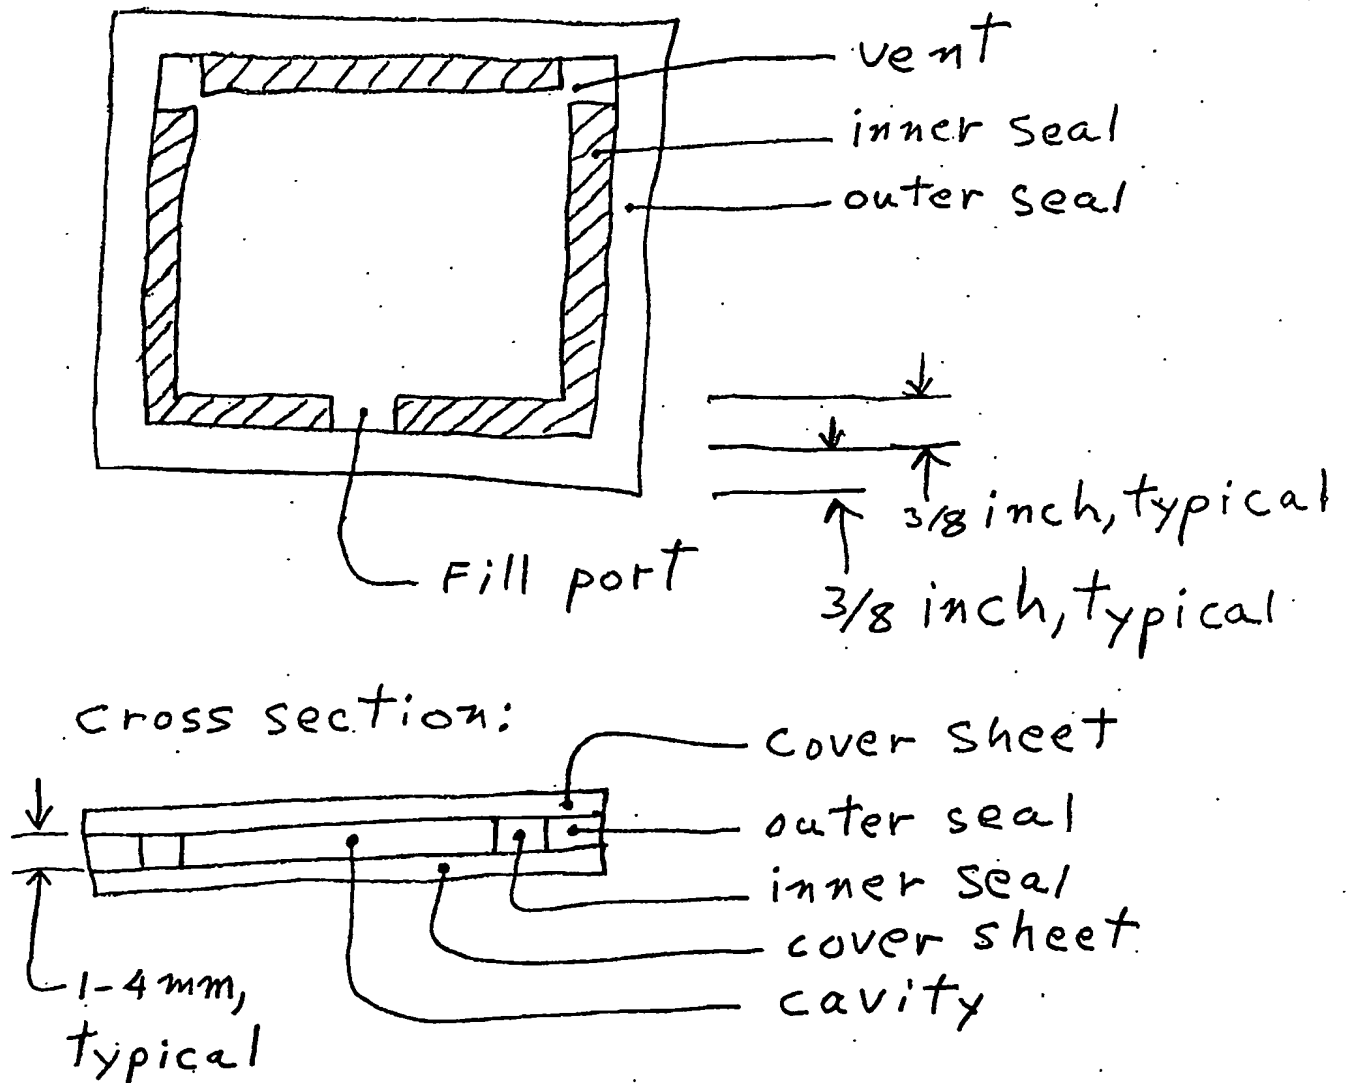 vent
inner seal
outer seal
3/8 inch, typical
Fill port
3/8 inch, typical
cross section:
cover sheet
outer seal
inner seal
cover sheet
1-4 mm,
cavity
typical